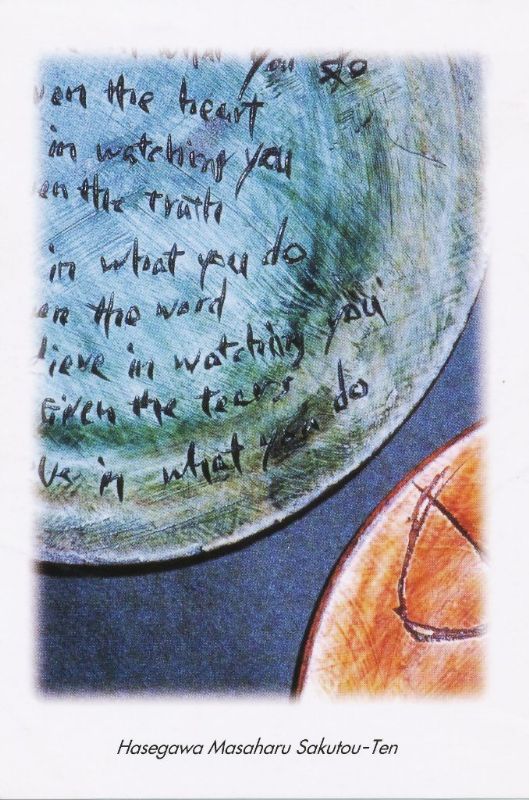 what you do
ven the heart
in watching you
en the truth
in what you do
en the word
lieve in watching you
Given the tears
ve in what you do
Hasegawa Masaharu Sakutou-Ten